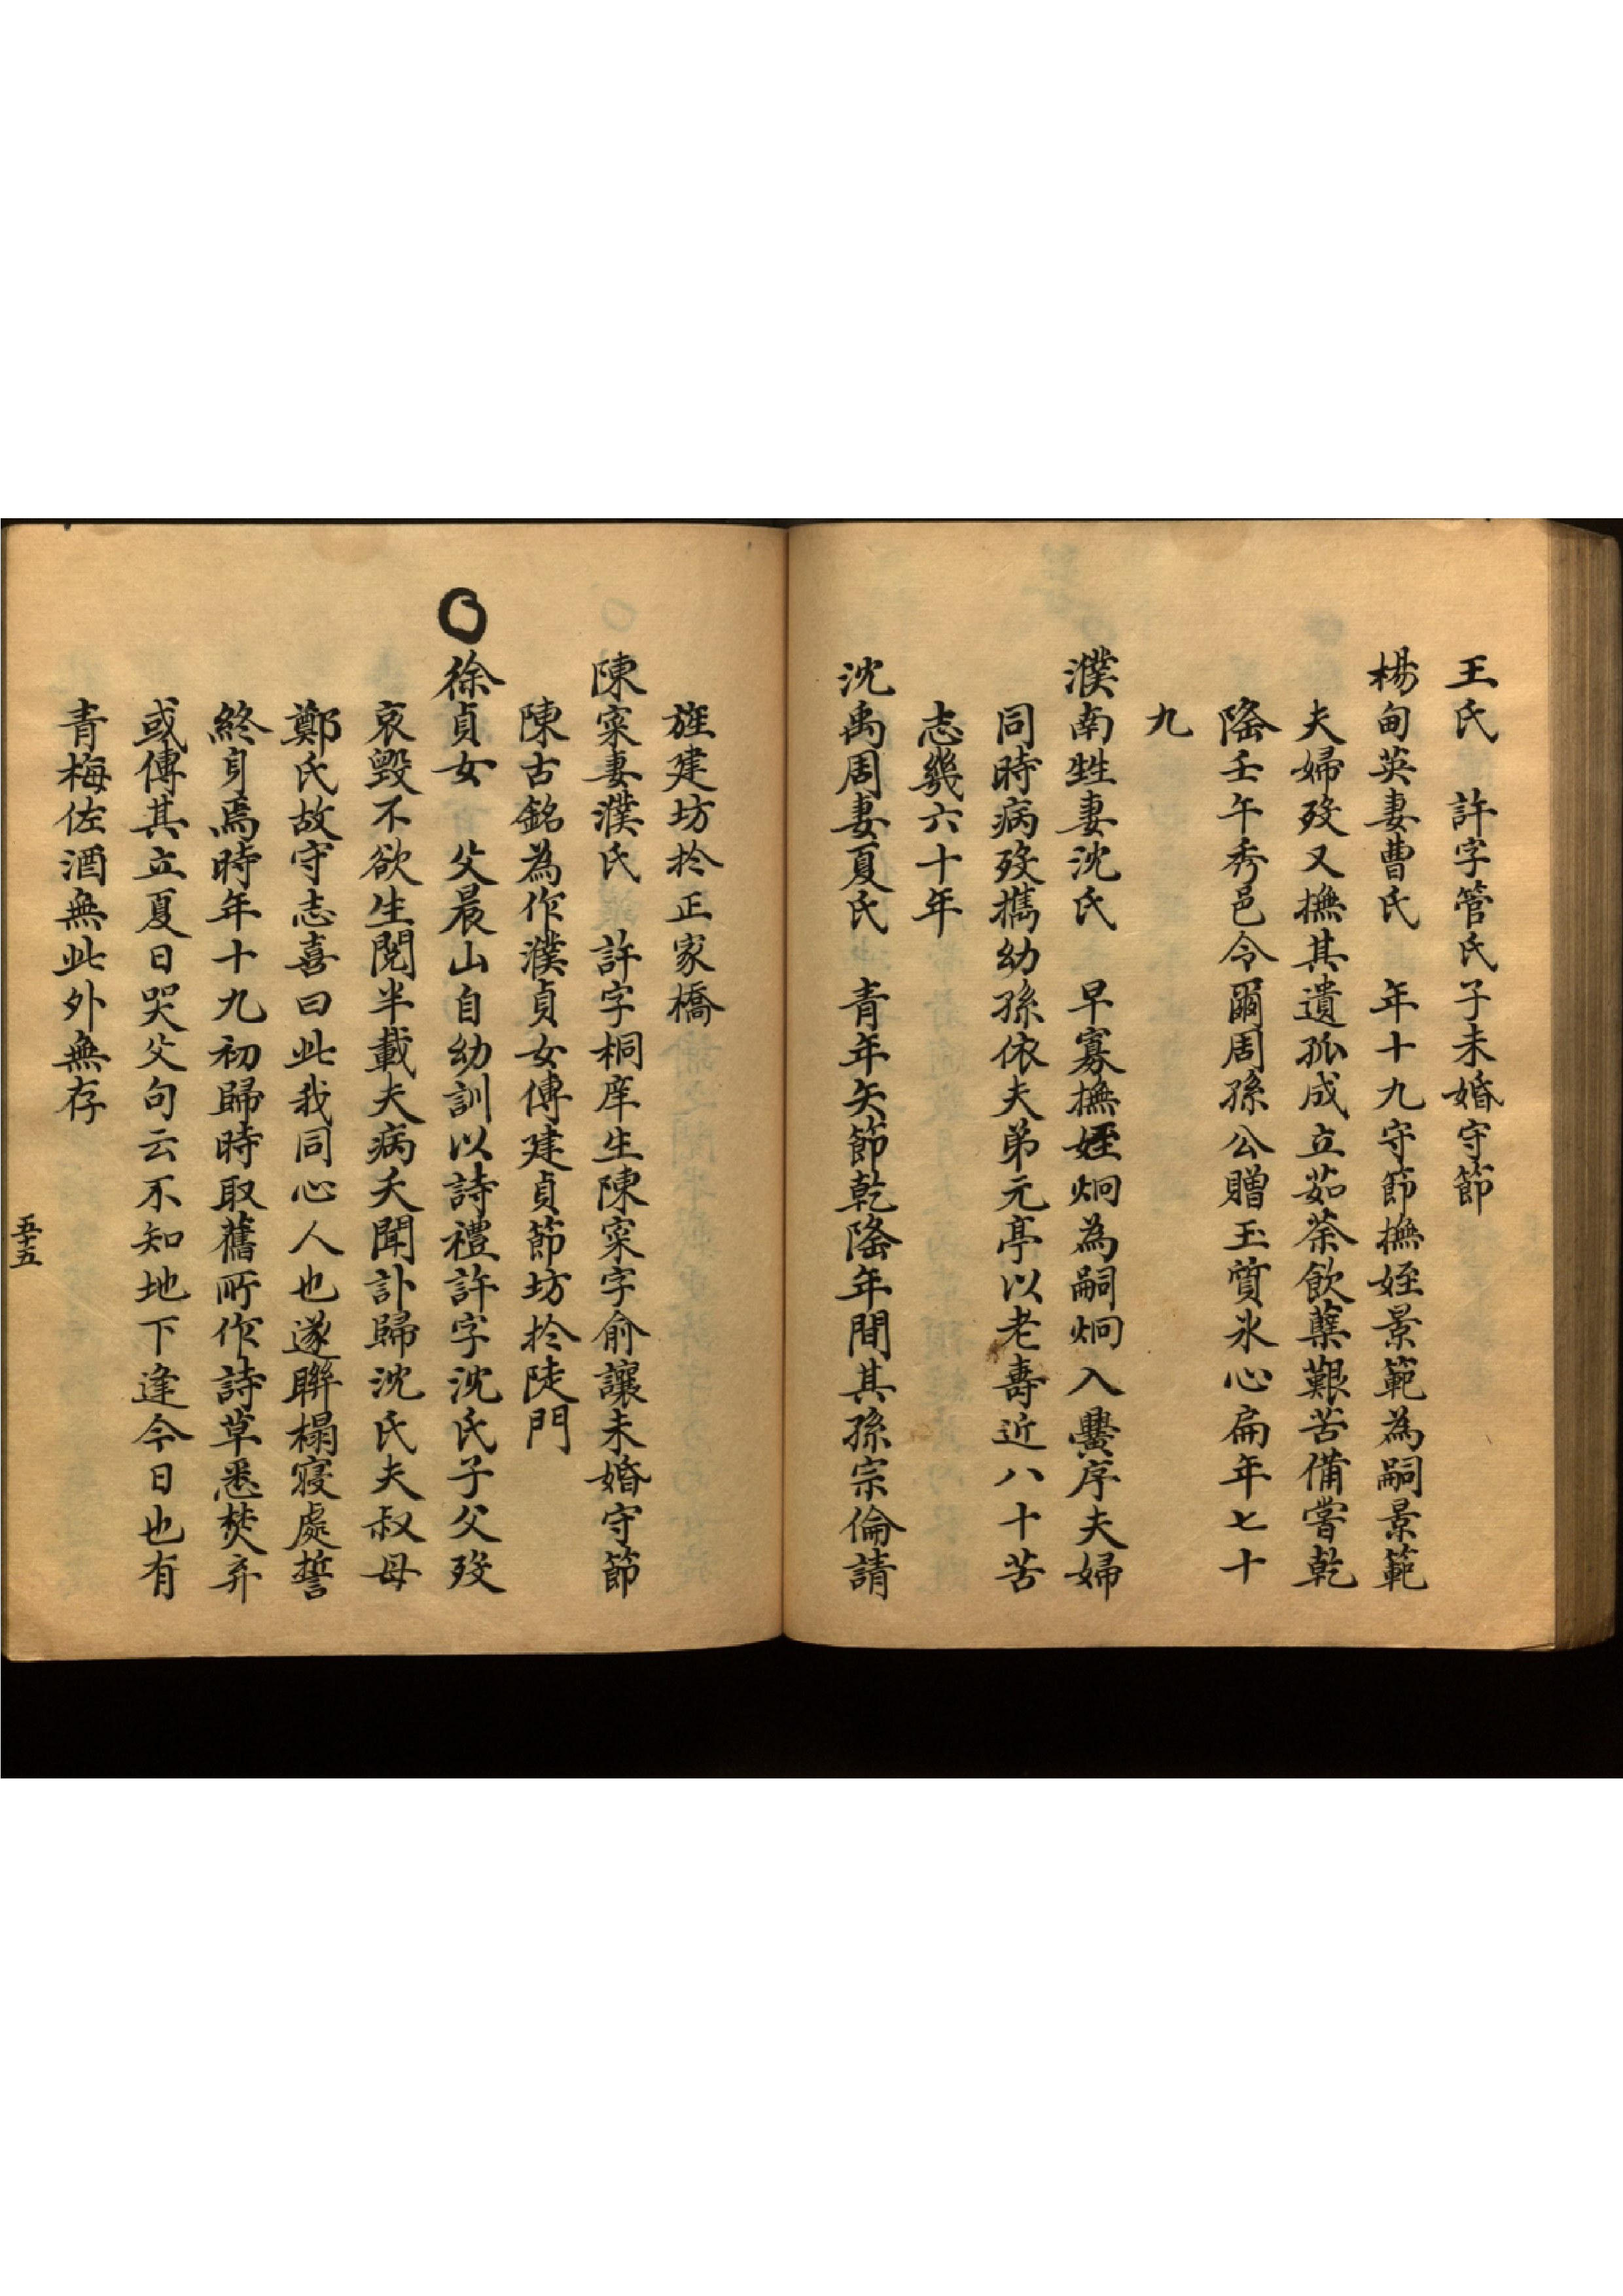 王氏　許字管氏子未婚守節
楊甸英妻曹氏　年十九守節撫姪景範為嗣景範
夫婦歿又撫其遺孤成立茹荼飲蘗艱苦備嘗乾
隆壬午秀邑令爾周孫公贈玉質氷心扁年七十
九
濮南甡妻沈氏　早寡撫姪炯為嗣炯入黌序夫婦
同時病歿携幼孫依夫弟元亭以老壽近八十苦
志幾六十年
沈禹周妻夏氏　青年矢節乾隆年間其孫宗倫請
旌建坊扵正家橋
陳寀妻濮氏　許字桐庠生陳寀字俞讓未婚守節
陳古銘為作濮貞女傳建貞節坊扵陡門
〇徐貞女　父晨山自幼訓以詩禮許字沈氏子父歿
哀毀不欲生閱半載夫病夭聞訃歸沈氏夫叔母
鄭氏故守志喜曰此我同心人也遂聯榻寢處誓
終身焉時年十九初歸時取舊所作詩草悉焚弃
或傳其立夏日哭父句云不知地下逢今日也有
青梅佐酒無此外無存
五十五